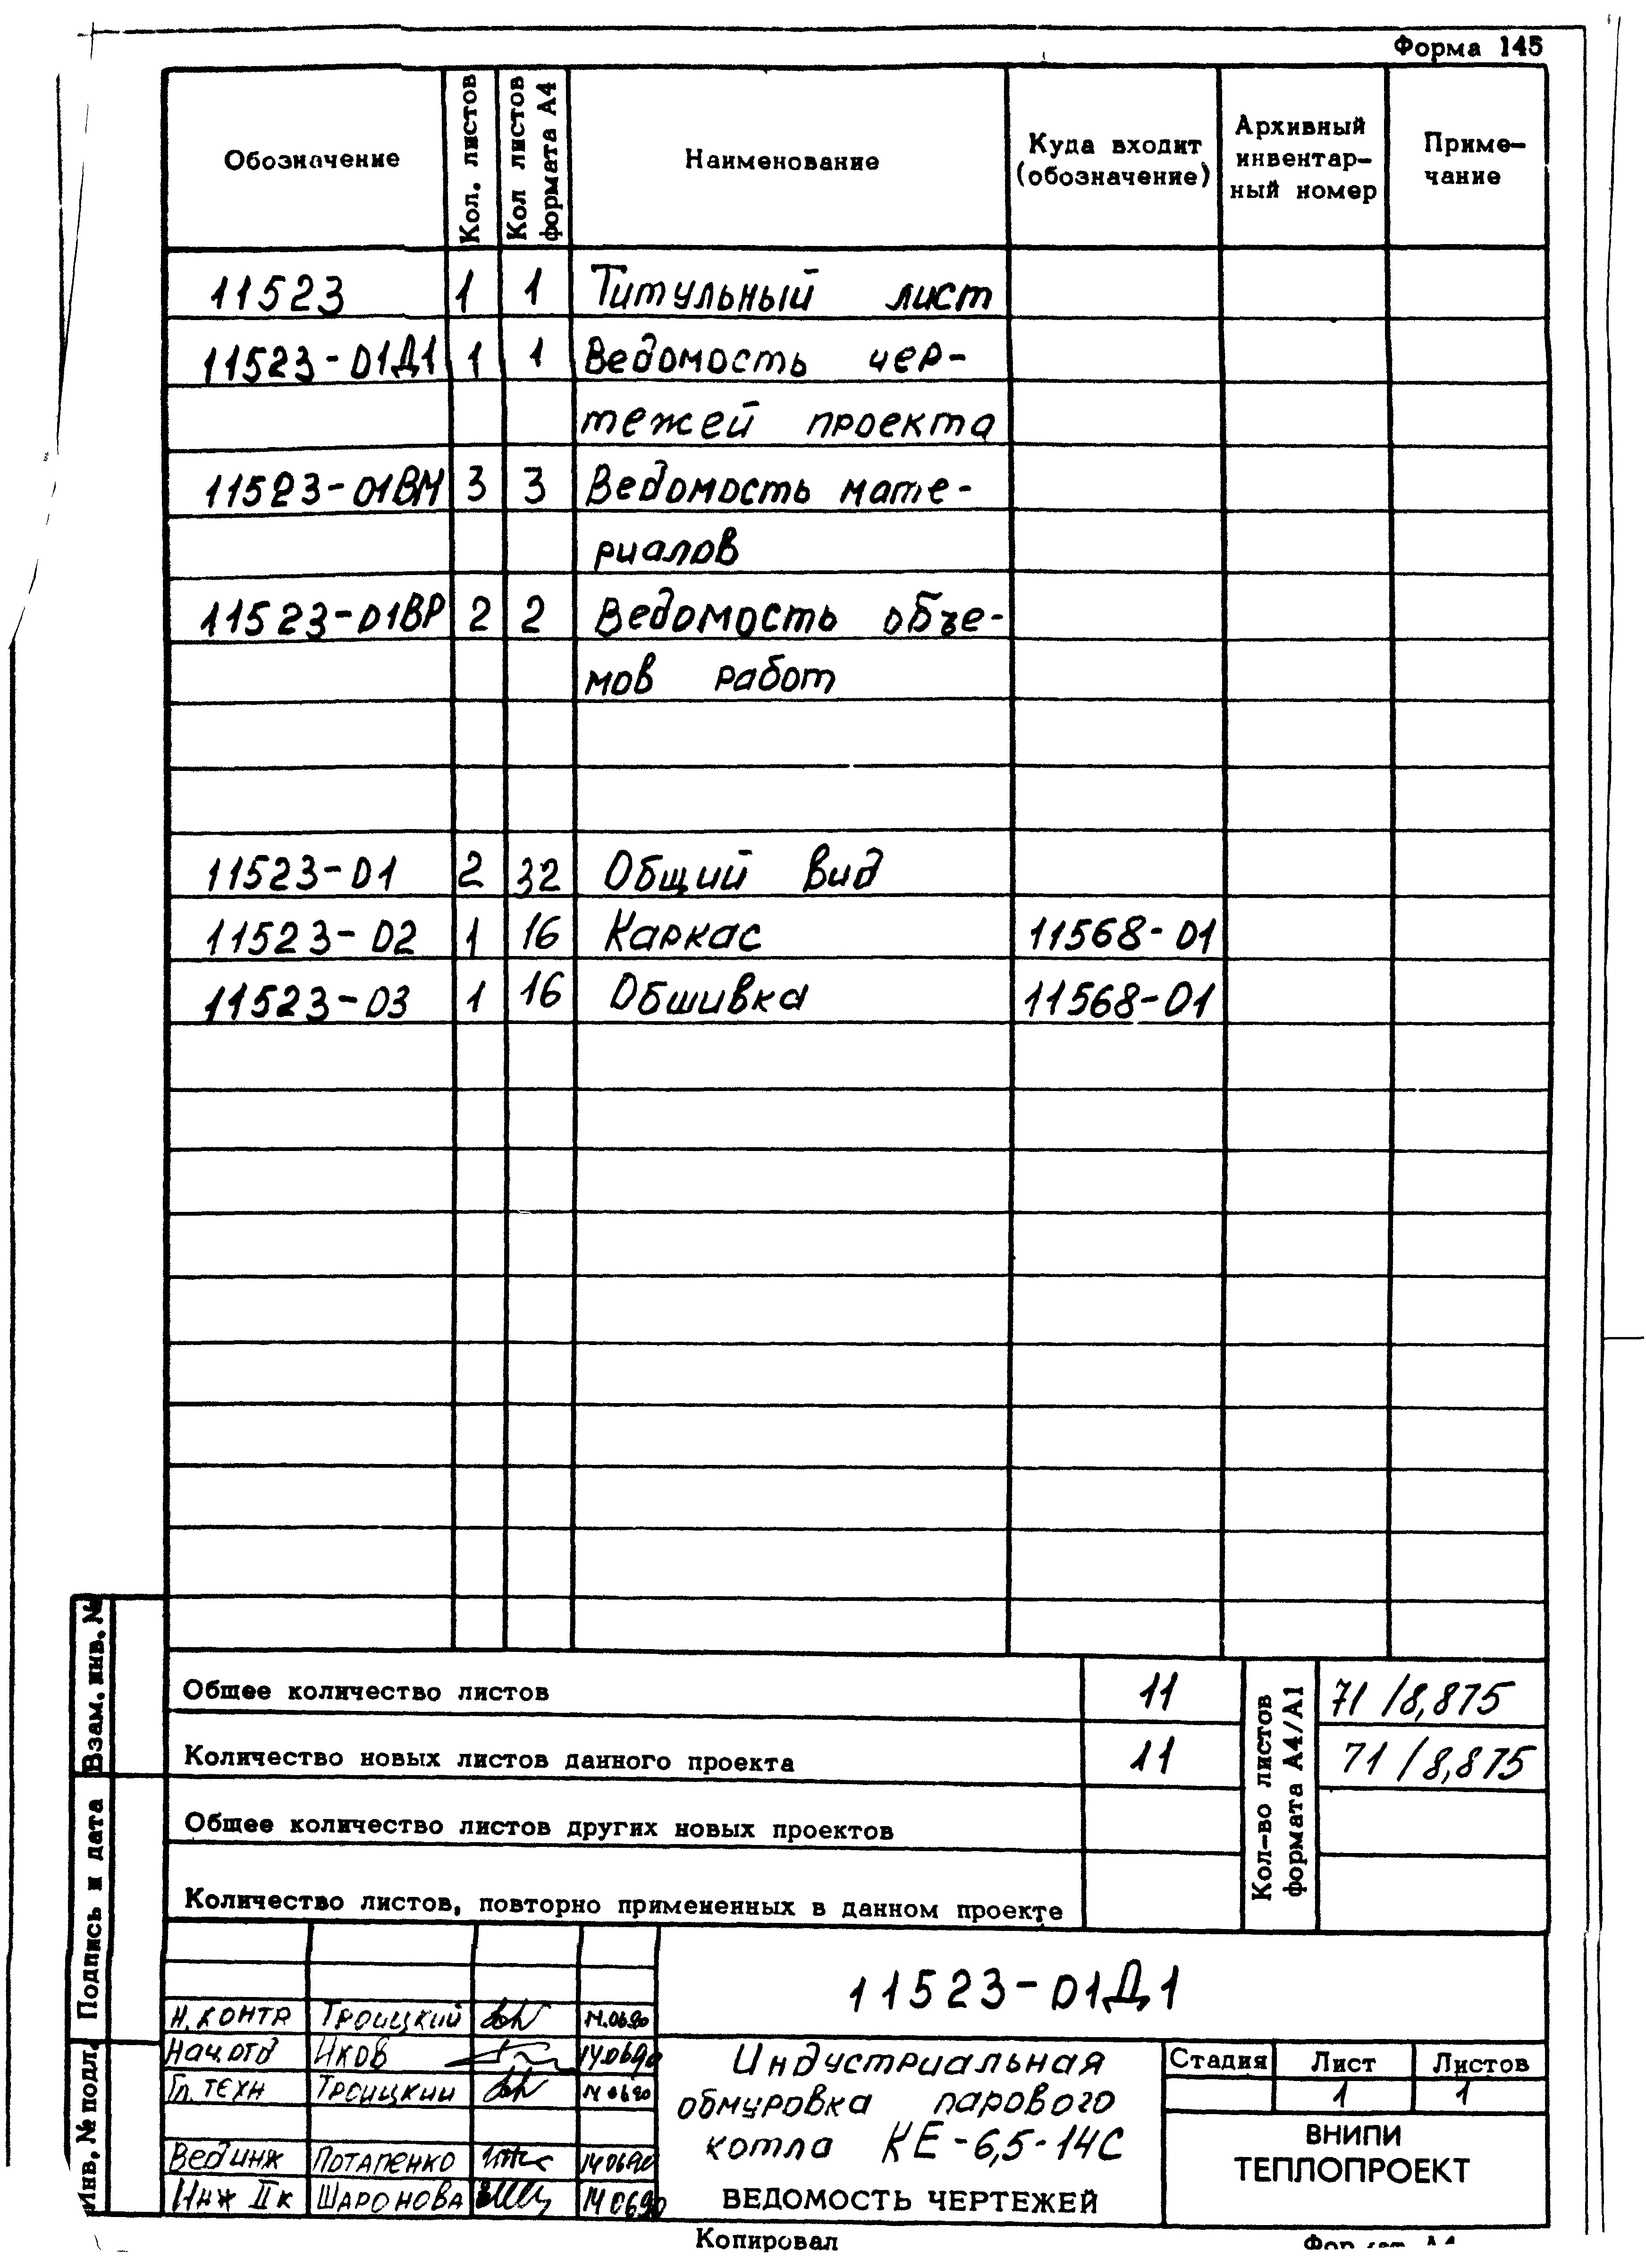 Форма 145
Обозначение
Кол. листов
Кол листов формата А4
Наименование
Куда входит (обозначение)
Архивный инвентар-ный номер
Приме-чание
11523 1 1 Титульный лист
11523-01Д1 1 1 Ведомость чер-
тежей проекта
11523-01ВМ 3 3 Ведомость мате-
риалов
11523-01ВР 2 2 Ведомость объе-
мов работ
11523-01 2 32 Общий вид
11523-02 1 16 Каркас 11568-01
11523-03 1 16 Обшивка 11568-01
Общее количество листов 11 71/8,875
Количество новых листов данного проекта 11 71/8,875
Общее количество листов других новых проектов
Количество листов, повторно примененных в данном проекте
Кол-во листов формата А4/А1
Взам. инв. №
Подпись и дата
Инв. № подл.
11523-01Д1
Н. контр Троицкий 14.06.90
Нач. отд Иков 14.06.90
Гл. техн Троицкий 14.06.90
Вед инж Потапенко 14.06.90
Инж II к Шаронова 14.06.90
Индустриальная
обмуровка парового
котла КЕ-6,5-14С
ВЕДОМОСТЬ ЧЕРТЕЖЕЙ
Стадия Лист Листов
1 1
ВНИПИ
ТЕПЛОПРОЕКТ
Копировал